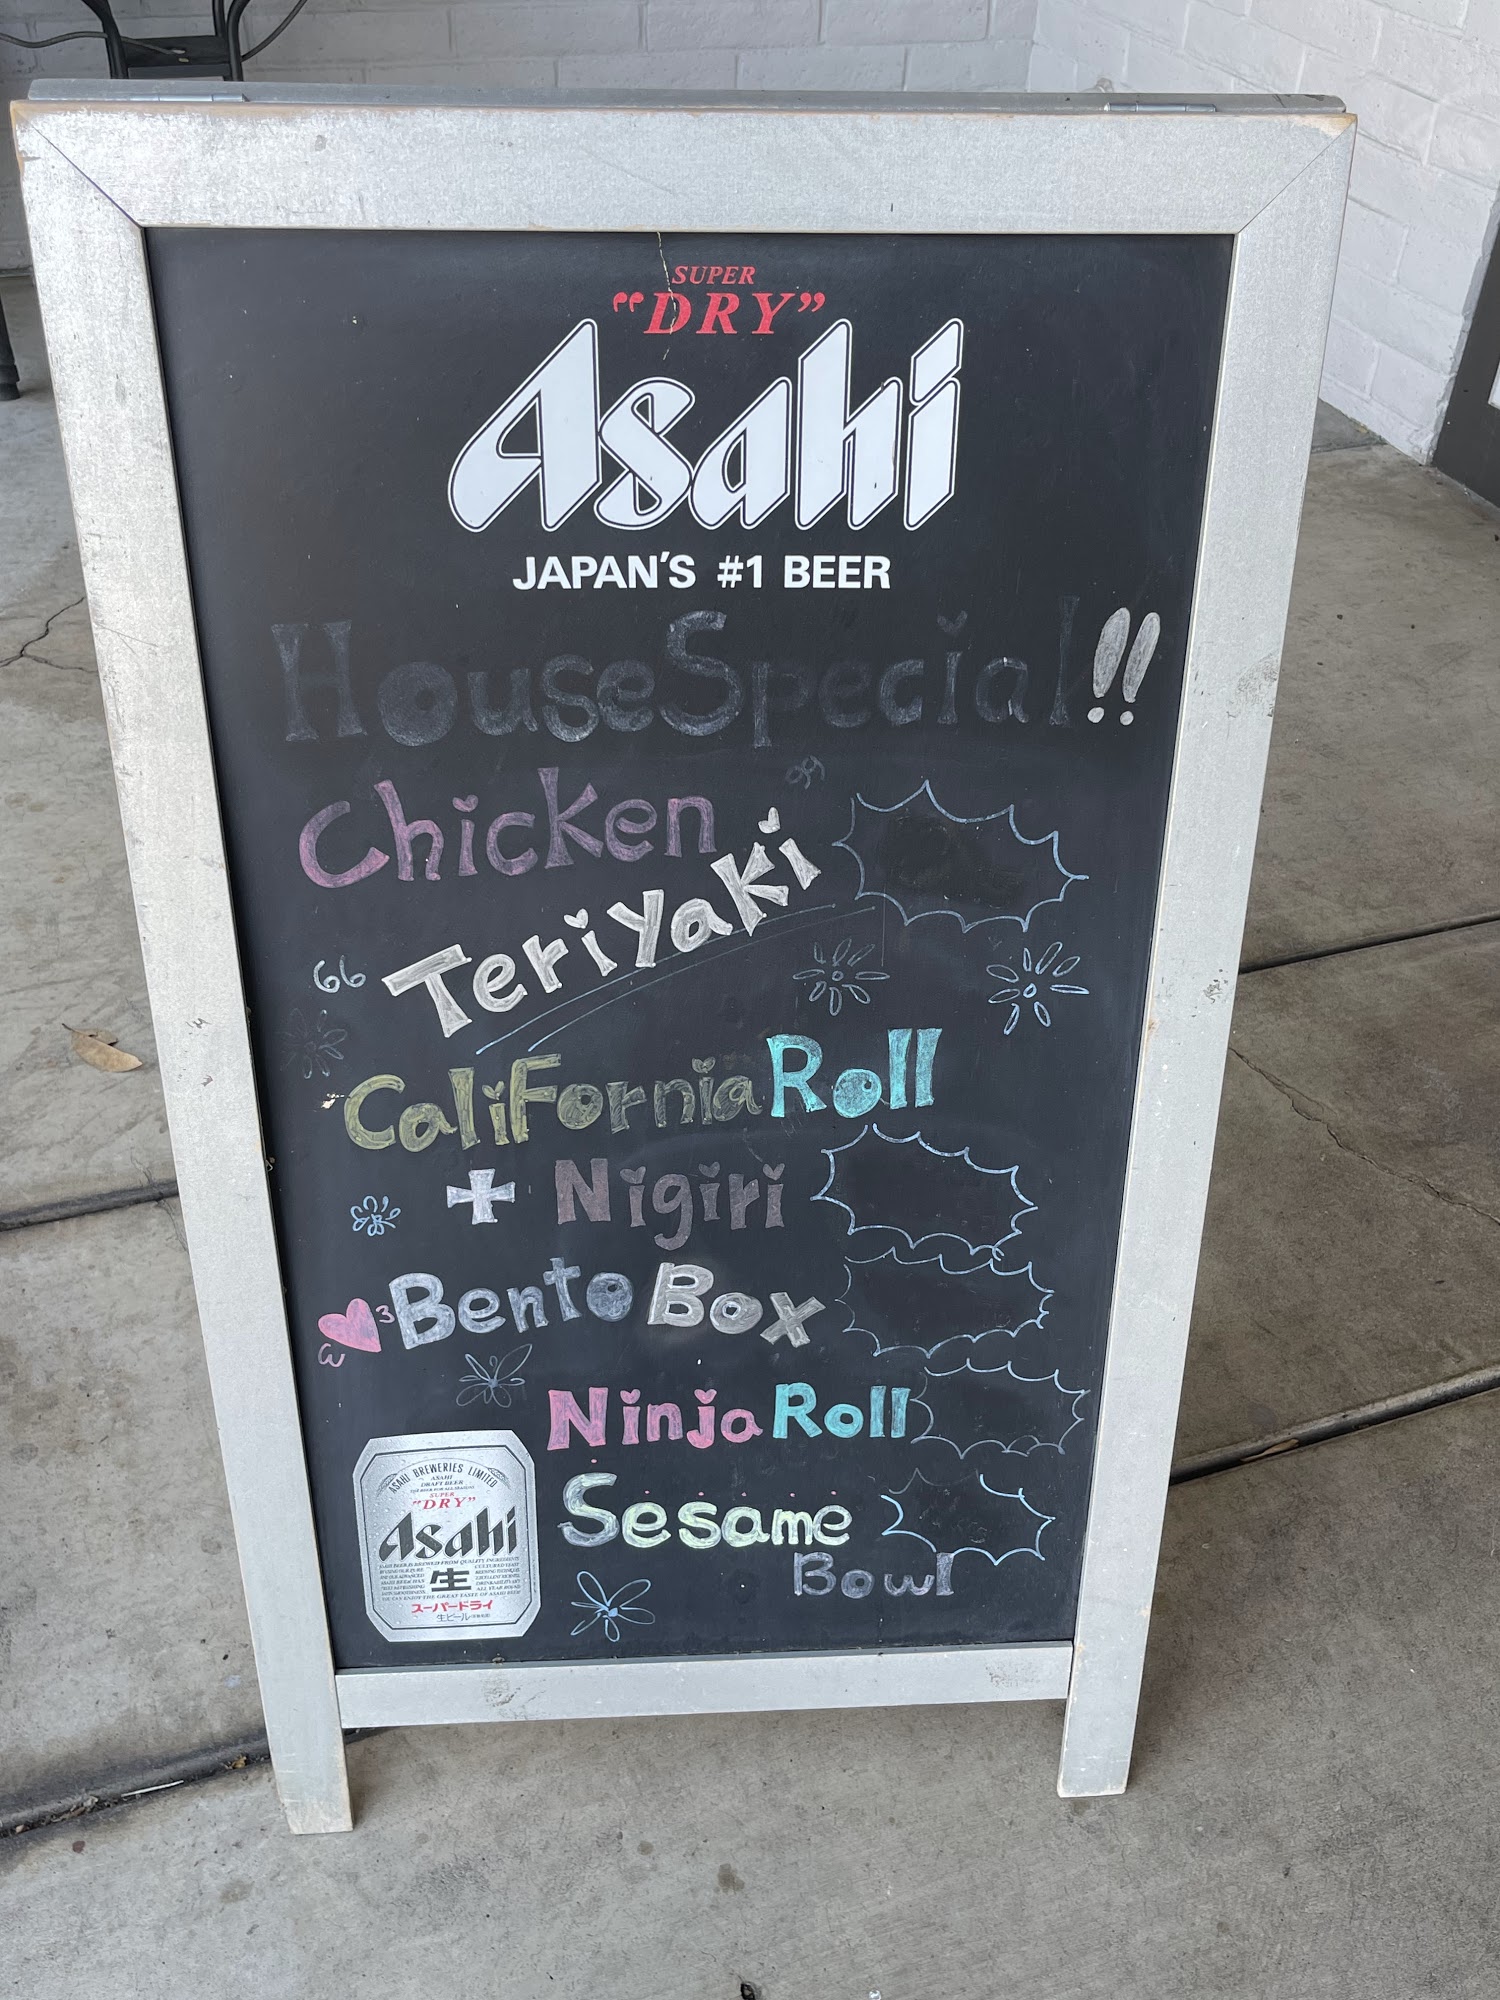 SUPER
"DRY"
Asahi
JAPAN'S #1 BEER
House Special!!
Chicken
Teriyaki
California Roll
+ Nigiri
Bento Box
Ninja Roll
Sesame
Bowl
ASAHI BREWERIES LIMITED
ASAHI
DRAFT BEER
SUPER
"DRY"
Asahi
生
スーパードライ
生ビール